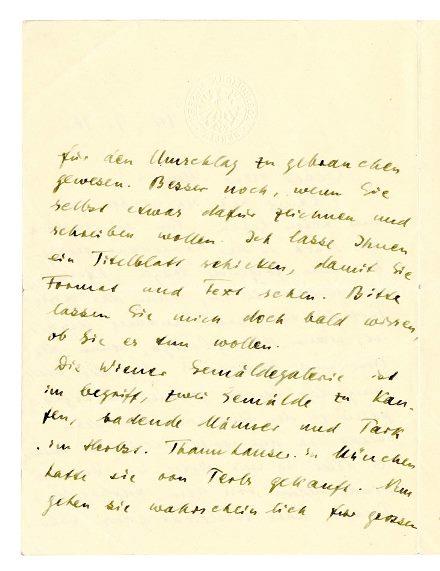 für den Umschlag zu gebrauchen
gewesen. Besser noch, wenn Sie
selbst etwas dafür zeichnen und
schreiben wollen. Ich lasse Ihnen
ein Titelblatt schicken, damit Sie
Format und Text sehen. Bitte
lassen Sie mich doch bald wissen,
ob Sie es tun wollen.
Die Wiener Gemäldegalerie ist
im begriff, zwei Gemälde zu kau-
fen, badende Männer und Park
im Herbst. Thannhauser in München
hatte sie von gekauft. Nun
gehen sie wahrscheinlich für grossen